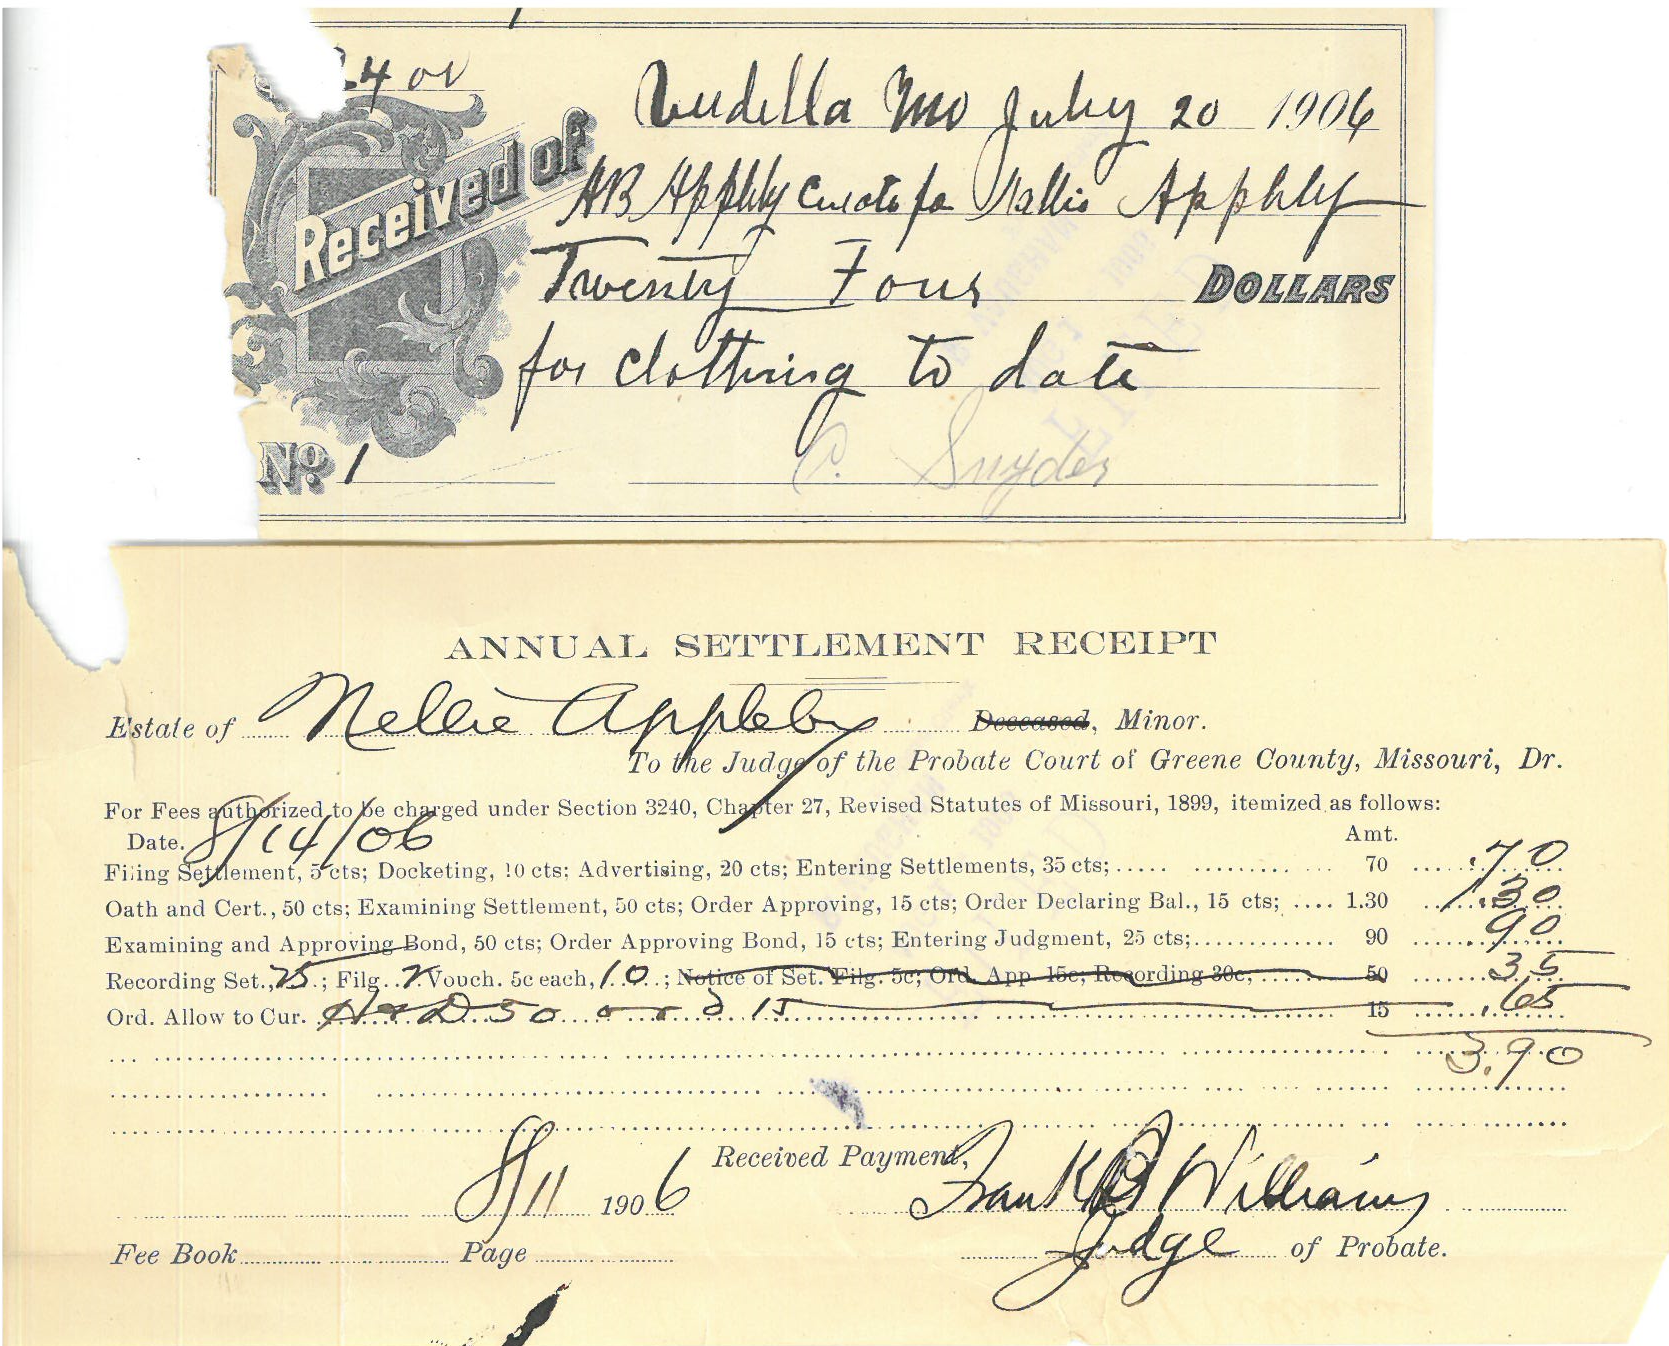 24 00
Mo July 20 1906
Received of AB Apphly Curato for Nellie Apphly
Twenty Four DOLLARS
for clothing to date
No. 1 C. Snyder
ANNUAL SETTLEMENT RECEIPT
Estate of Nellie Appleby Deceased, Minor.
To the Judge of the Probate Court of Greene County, Missouri, Dr.
For Fees authorized to be charged under Section 3240, Chapter 27, Revised Statutes of Missouri, 1899, itemized as follows:
Date. 8/14/06 Amt.
Filing Settlement, 5 cts; Docketing, 10 cts; Advertising, 20 cts; Entering Settlements, 35 cts; 70 .70
Oath and Cert., 50 cts; Examining Settlement, 50 cts; Order Approving, 15 cts; Order Declaring Bal., 15 cts; 1.30 1.30
Examining and Approving Bond, 50 cts; Order Approving Bond, 15 cts; Entering Judgment, 25 cts; 90 .90
Recording Set., 25.; Filg. 2 Vouch. 5c each, 10.; Notice of Set. Filg. 5c; Ord. App. 15c; Recording 30c, 50 35
Ord. Allow to Cur. 50 ord 15 15 .65
3.90
8/11 1906 Received Payment, Frank B Williams
Fee Book Page Judge of Probate.